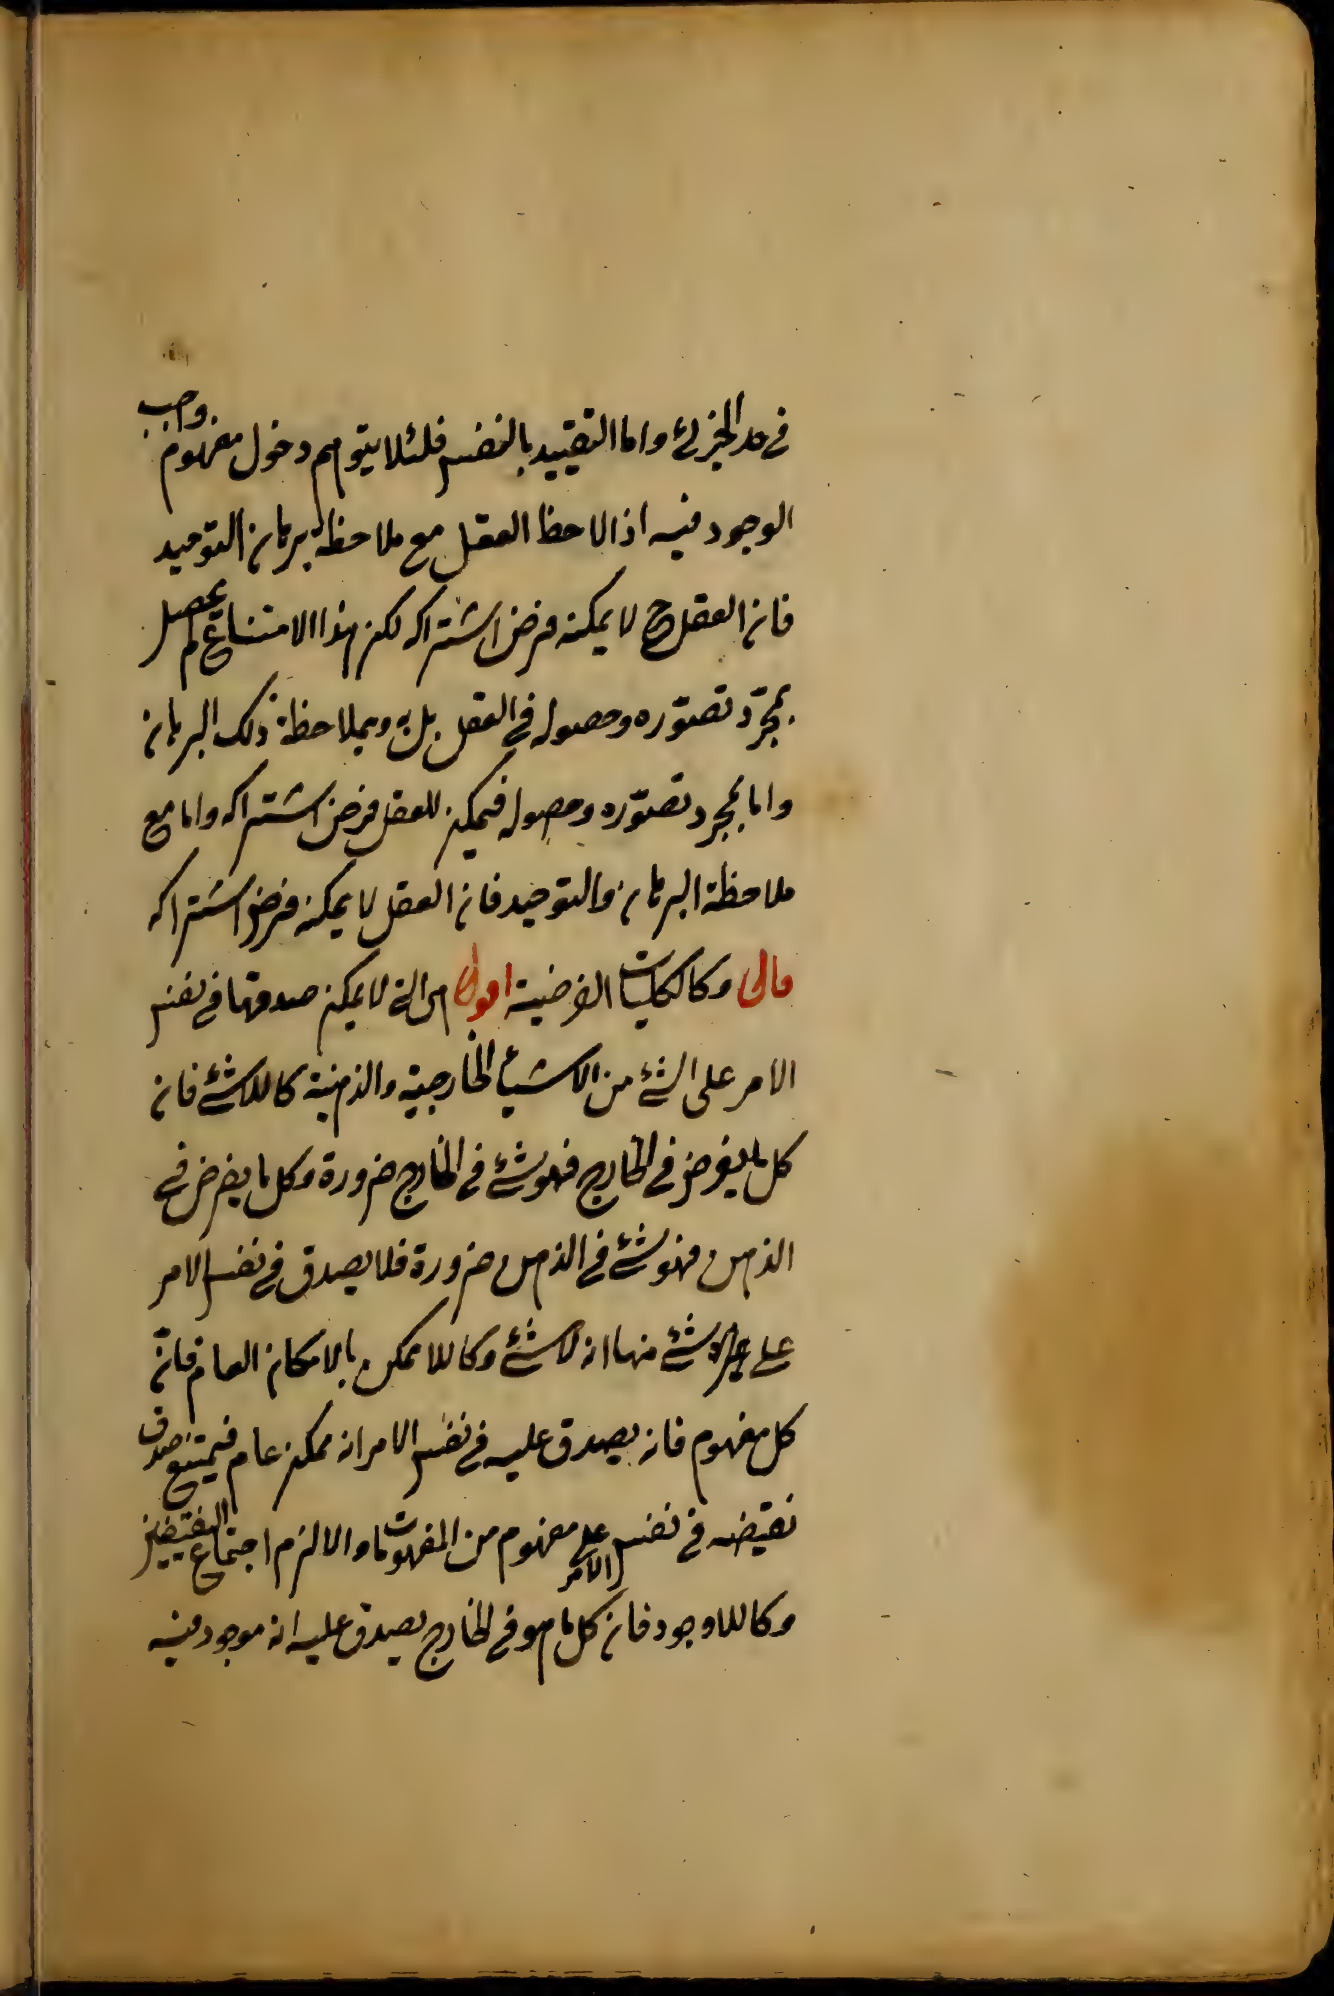 في حد الجزئي واما التقييد بالنفس فلئلا يتوهم دخول مفهوم واجب
الوجود فيه اذا لاحظ العقل مع ملاحظة برهان التوحيد
فان العقل ح لا يمكنه فرض اشتراكه لكن هذا الامتناع لم يحصل
بمجرّد تصوّره وحصوله في العقل بل به وبملاحظة ذلك البرهان
واما بمجرد تصوّره وحصوله فيمكن للعقل فرض اشتراكه واما مع
ملاحظة البرهان والتوحيد فان العقل لا يمكنه فرض اشتراكه
قال وكالكليات الفرضية اقول هي التي لا يمكن صدقها في نفس
الامر على الشئ من الاشياء الخارجية والذهنية كاللاشئ فان
كل ما يفرض في الخارج فهو شئ في الخارج ضرورة وكل ما يفرض في
الذهن فهو شئ في الذهن ضرورة فلا يصدق في نفس الامر
على شئ منها انه لا شئ وكاللا ممكن بالامكان العام فانّ
كل مفهوم فانه يصدق عليه في نفس الامر انه ممكن عام فيمتنع صدق
نقيضه في نفس الامر على مفهوم من المفهومات والا لزم اجتماع النقيضين
وكاللا وجود فان كل ما هو في الخارج يصدق عليه انه موجود فيه